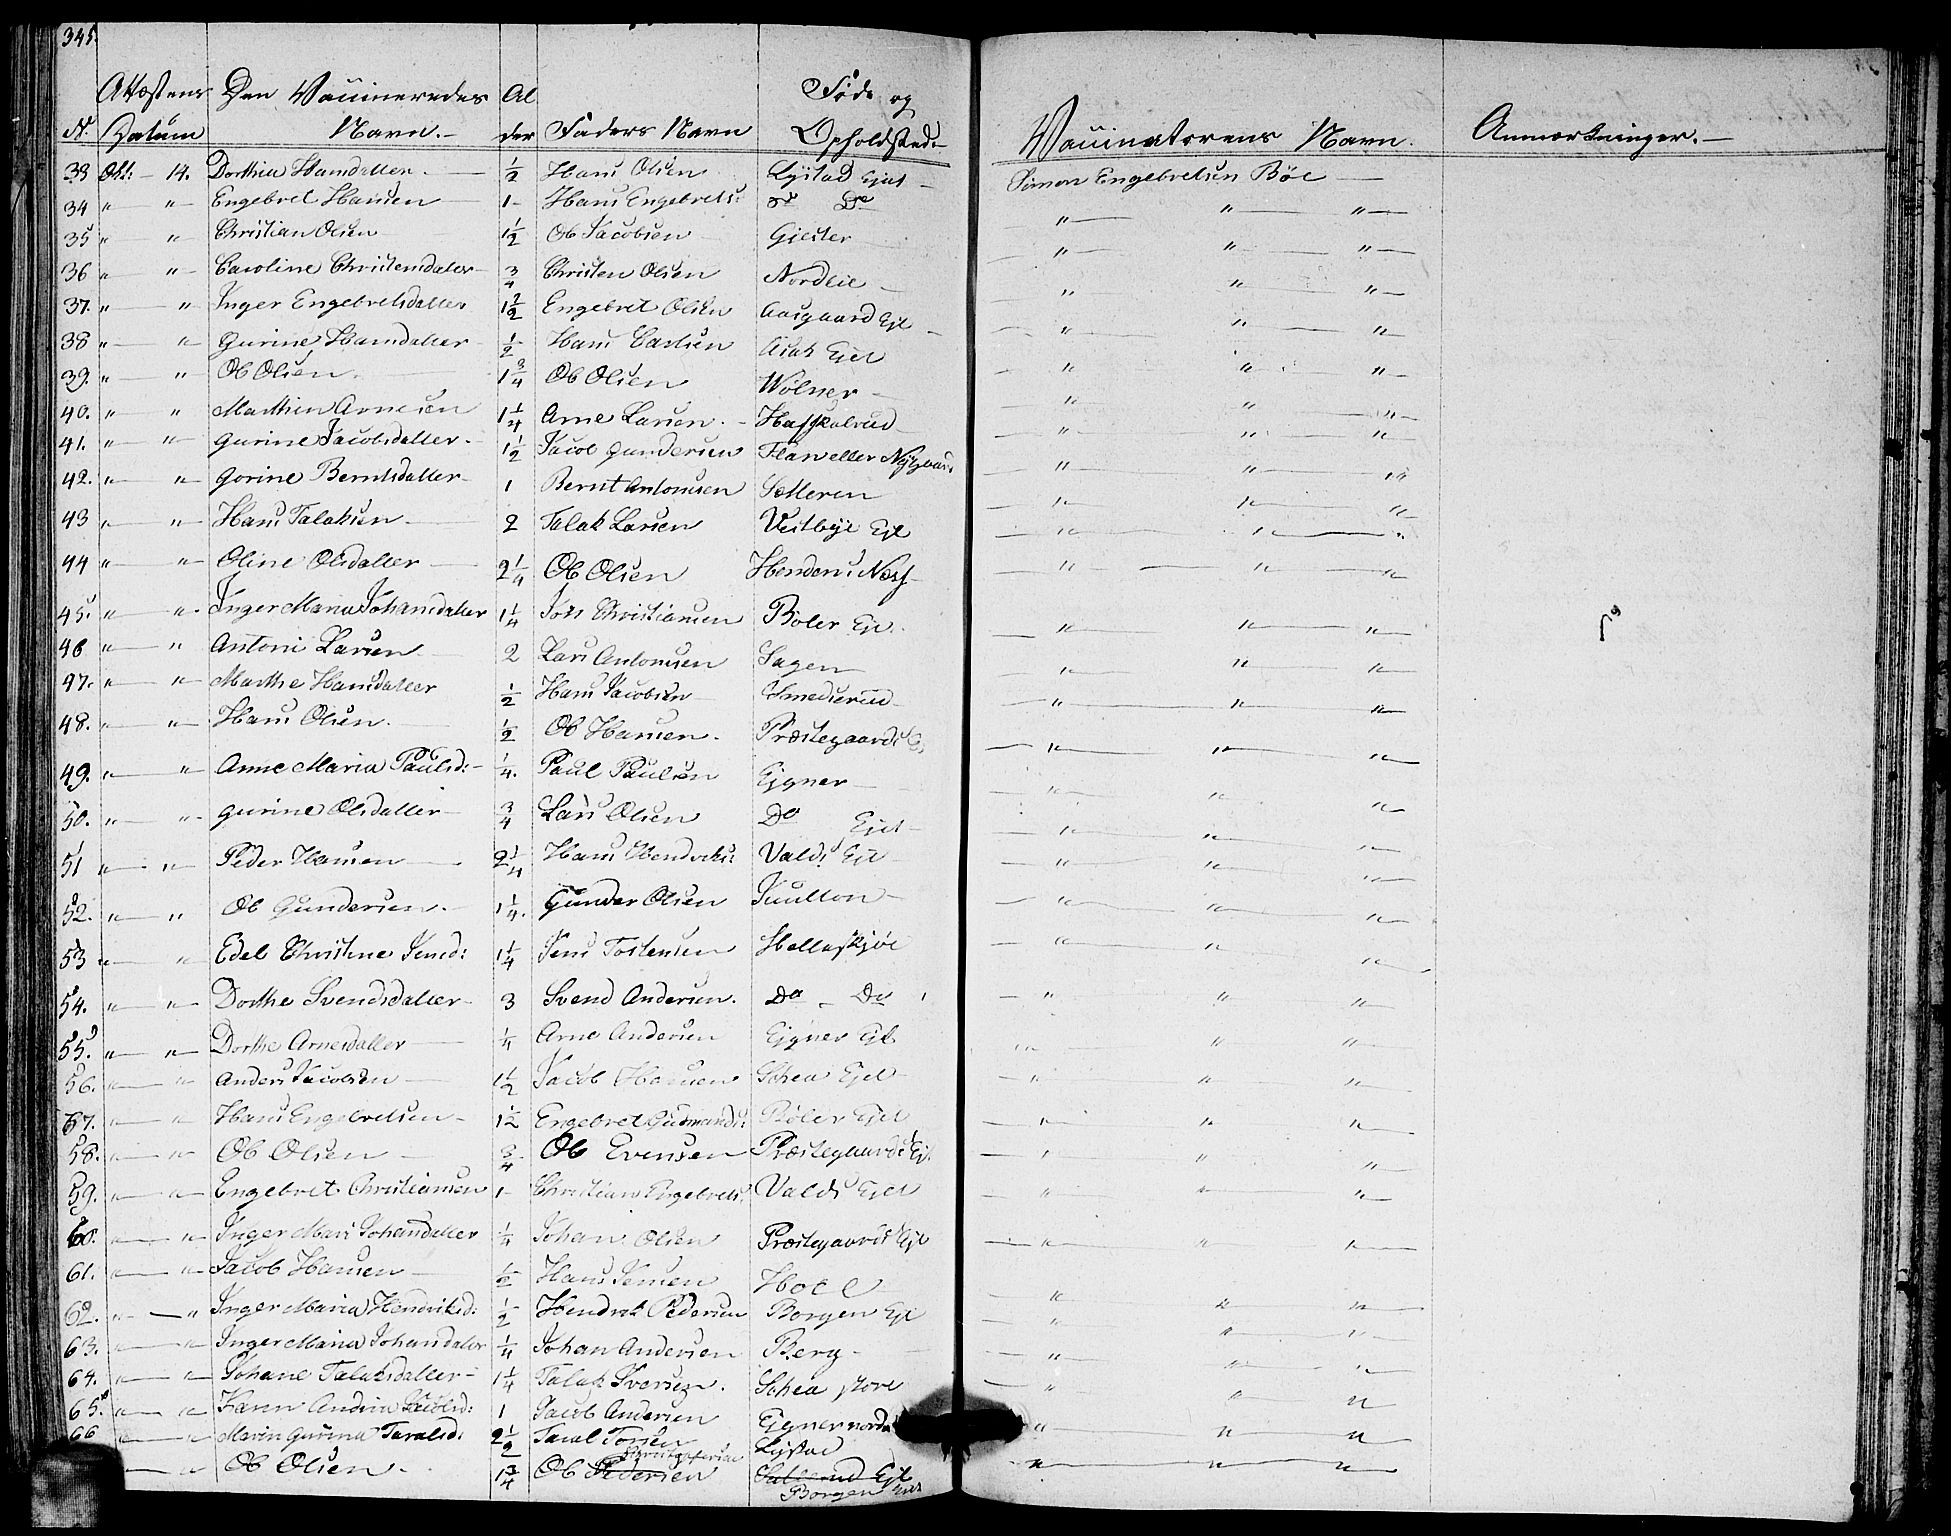 345.
Attestens Den Vaccineredes Al Føde og
N. Datum Navn. der Faders Navn Opholdsted. Vaccinatorens Navn. Anmærkninger.
33 Oct: 14. Dorthea Hansdatter 1/2 Hans Olsen Lystad Ejet Simon Engebretsen Böe
34 " " Engebret Hansen 1 Hans Engebrets: Do Do " " "
35 " " Christian Olsen 1 1/2 Ole Jacobsen Gjester " " "
36 " " Caroline Christensdatter 3/4 Christen Olsen Nordlie " " "
37. " " Inger Engebretsdatter Engebret Olsen Aasgaard Ejt " " "
38 " " Gurine Hansdatter 1/2 Hans Carlsen Asak Ejet " " "
39. " " Ole Olsen 1 3/4 Ole Olsen Wölner " " "
40. " " Mathias Arnesen 1 1/4 Arne Larsen " " "
41. " " Gurine Jacobsdatter 1 1/2 Jacob Gundersen Flaen eller Nygaard " " "
42. " " Gorine Berntsdatter 1 Bernt Antonsen Sætteren " " "
43 " " Hans Talaksen 2 Talak Larsen Vestbye Ejt " " "
44 " " Oline Olsdatter 2 1/4 Ole Olsen " " "
45. " " Inger Maria Johansdatter 1 1/4 Christiansen Böler Ejt. " " "
46 " " Antoni Larsen 2 Lars Antonsen Sagen " " "
47. " " Marthe Hansdatter 1/2 Hans Jacobsen Smedserud " " "
48. " " Hans Olsen 1/2 Ole Hansen Præstegaards E " " "
49. " " Anne Maria Paulsd: 1/4. Paul Paulsen Ejgner " " "
50. " " Gurine Olsdatter 3/4 Lars Olsen Do Ejet " " "
51 " " Peder Hansen 2 1/4 Hans Hendriks: Valds Ejt " " "
52. " " Ole Gundersen 1 1/4. Gunder Olsen " " "
53 " " Edel Christine Jensd: 1 1/4 Jens Tostensen Hellesjöe " " "
54. " " Dorthe Svendsdatter 3 Svend Andersen. Do Do " " "
55. " " Dorthe Arnesdatter 1/4 Arne Andersen Ejgner Ejt. " " "
56. " " Anders Jacobsen 1 1/2 Jacob Hansen Schea Ejet " " "
57. " " Hans Engebretsen 1 1/2 Engebret Gudmunds: Böler Ejet " " "
58. " " Ole Olsen 3/4 Ole Evensen Præstegaards Ejt. " " "
59. " " Engebret Christiansen 1 Christian Engebrets: Valds Ejet " " "
60. " " Inger Mari Johansdatter 1/4 Johan Olsen Præstegaards Ejt " " "
61. " " Jacob Hansen 1/2 Hans Jensen Hoel
62. " " Inger Maria Hendriksd: 1/2 Hendrik Pedersen Borgen Ejt " " "
63. " " Inger Maria Johansdatter 1/4 Johan Andersen Berg " " "
64. " " Johane Talaksdatter 1 1/4 Talak Iversen. Schea store " " "
65. " " Karen Andrea Jacobsd: 1 Jacob Andersen Ejgner nordre " " "
66 " Maren Gurina Taralsd: 2 1/2 Taral Torsen Lystad " " "
Christophersen
" Ole Olsen 1 3/4 Ole Pedersen Ejt " " "
Borgen